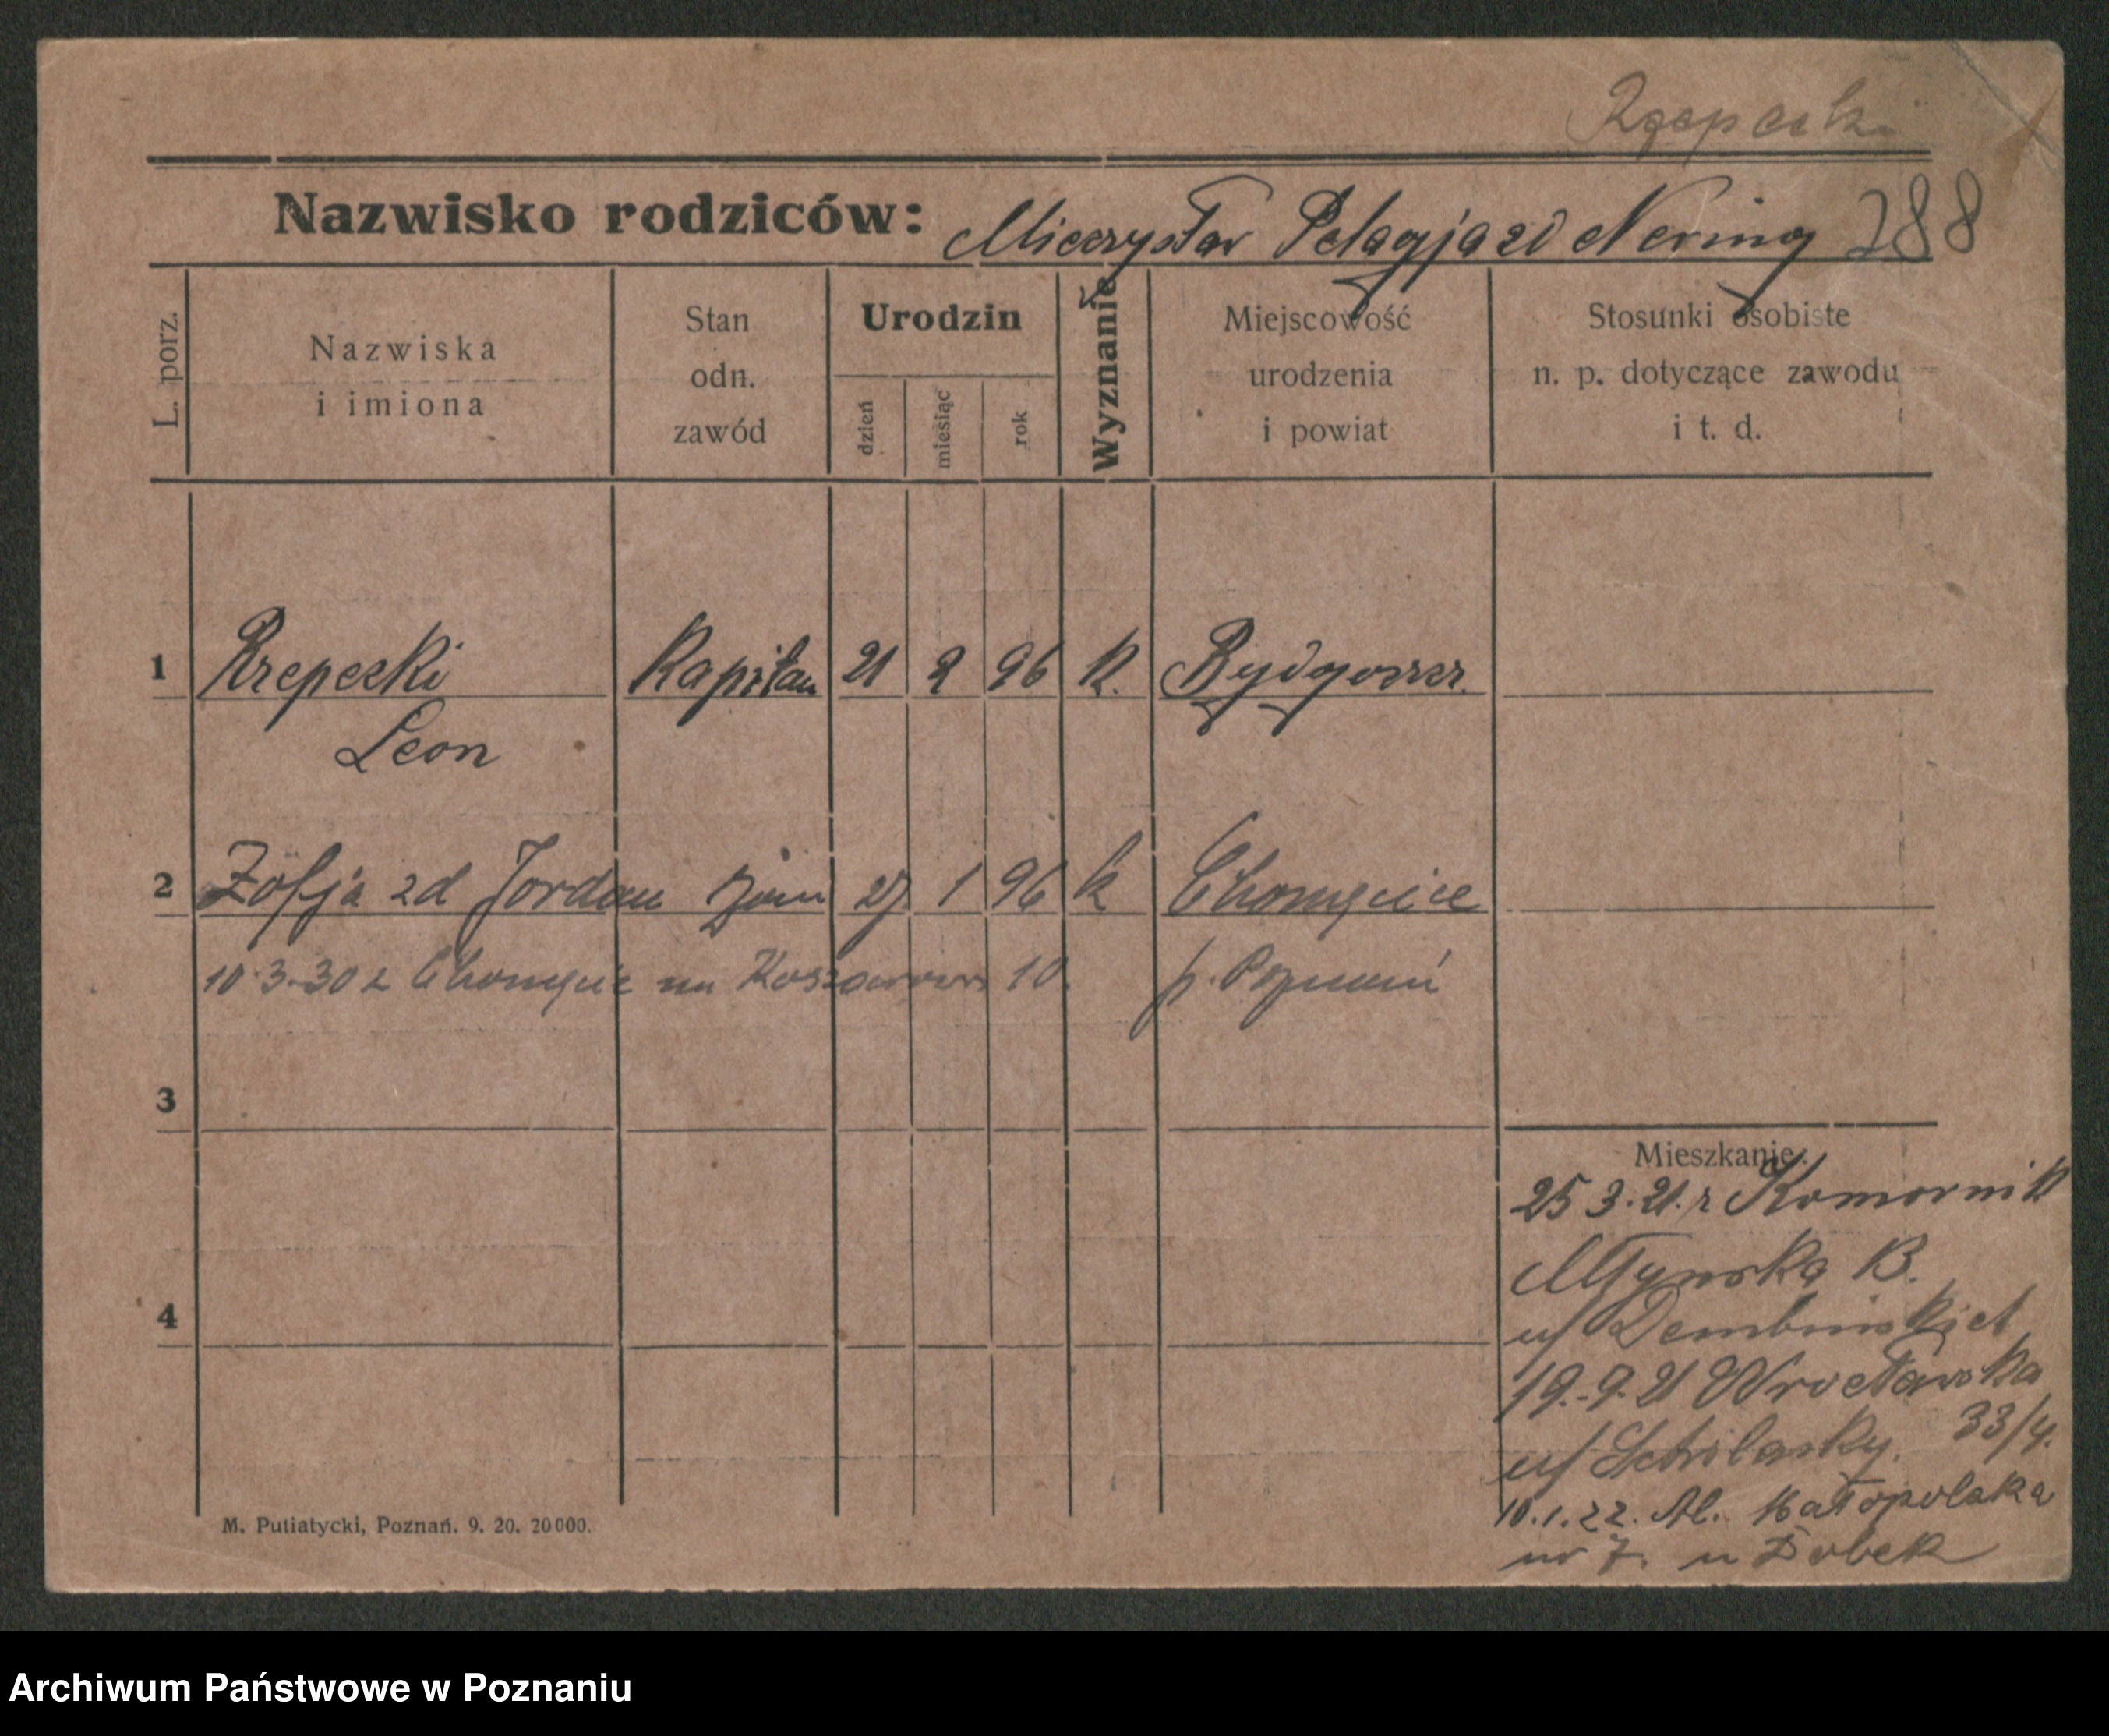 Rzepecki
Nazwisko rodziców: Mieczysław Pelagja zd Nering 288
L. porz.
Nazwiska
i imiona
Stan
odn.
zawód
Urodzin
dzień
miesiąc
rok
Wyznanie
Miejscowość
urodzenia
i powiat
Stosunki osobiste
n. p. dotyczące zawodu
i t. d.
1 Rzepecki Kapitan 21 2 96 k. Bydgoszcz
Leon
2 Zofja zd Jordan żona 27 1 96 k Chomęcice
10.3.30 z Chomęcic na 10. p. Poznań
3
Mieszkanie:
25 3.21. z Komornik
Młyńska
4
u/ Dembińskich
19.9.21 Wrocławska
33/4.
10.1.22. Al. Małopolska
nr 7. u Dobek
M. Putiatycki, Poznań. 9. 20. 20000.
Archiwum Państwowe w Poznaniu